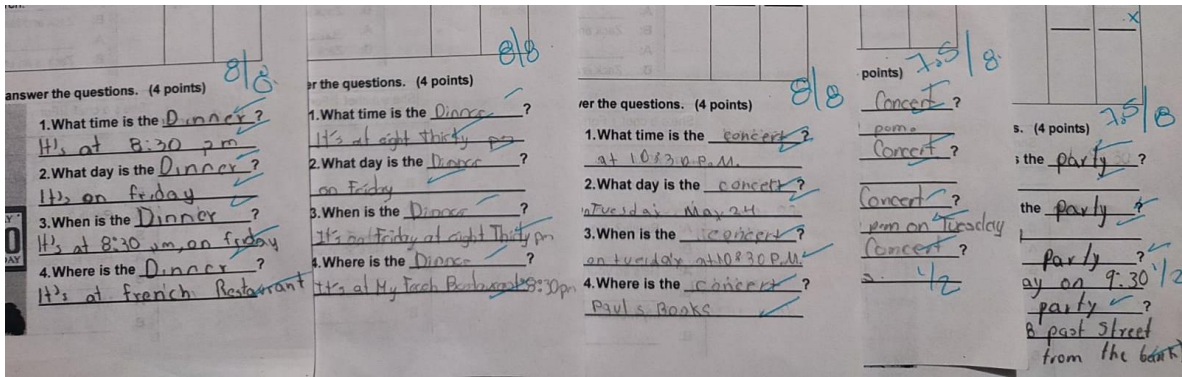 8/8
answer the questions. (4 points)
1.What time is the Dinner ?
It's at 8:30 pm
2.What day is the Dinner ?
It's on friday
3.When is the Dinner ?
It's at 8:30 pm, on friday
4.Where is the Dinner ?
It's at french Restaurant
DAY
8/8
er the questions. (4 points)
1.What time is the Dinner ?
It's at eight thirty pm
2.What day is the Dinner ?
on Friday
3.When is the Dinner ?
It's on Friday at eight Thirty pm
4.Where is the Dinner ?
It's at My 8:30pm
8/8
er the questions. (4 points)
1.What time is the concert ?
at 10:30 P.M.
2.What day is the concert ?
Tuesdai May 24
3.When is the concert ?
on tuerday at 10:30 P.M.
4.Where is the concert ?
Paul s Books
7.5/8
points)
Concert ?
p.m.
Concert ?
Concert ?
pm on Tuesday
Concert ?
1/2
x
7.5/8
s. (4 points)
s the party ?
the party ?
party ?
ay on 9:30 1/2
party ?
8 past Street
from the bank